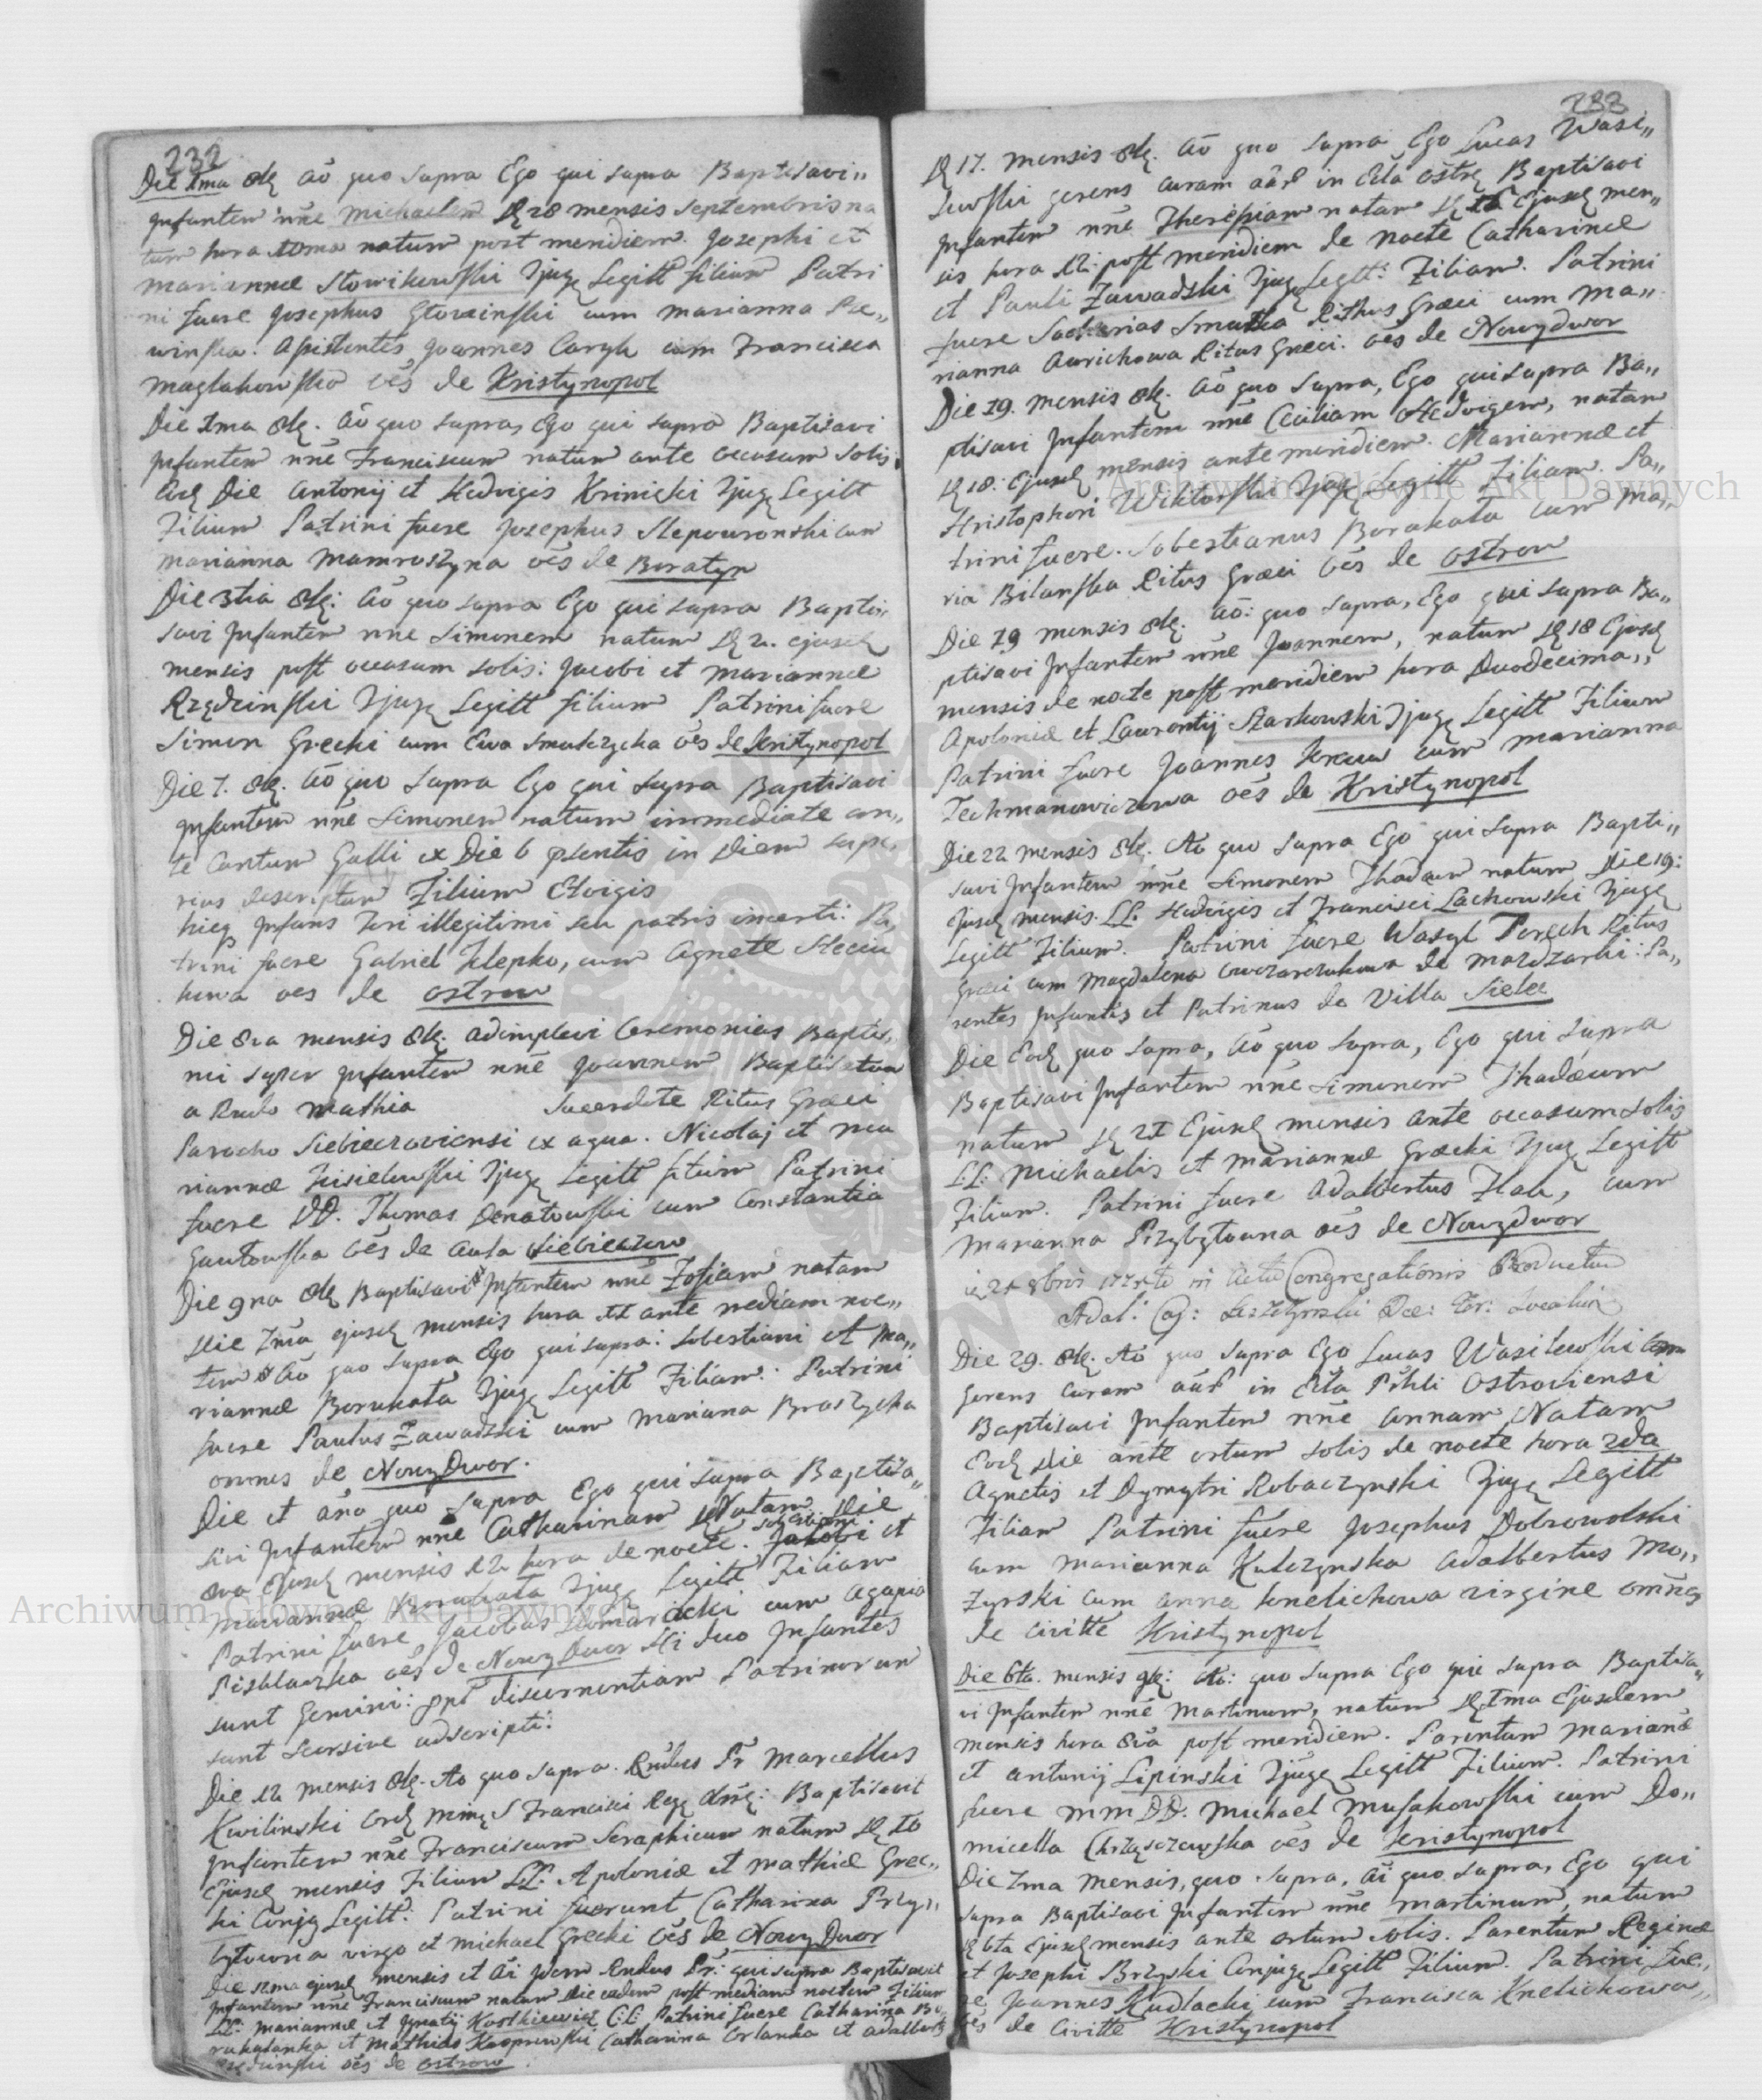 232
Die 1ma 8br ao quo supra Ego qui supra Baptisavi„
Infantem nne Michaelem d 28 mensis Septembris na
tum hora 10ma natum post meridiem. Josephi et
Mariannæ Słowikowski Cjug Legitt filium Patri
ni fuere Josephus cum Marianna
winska. Assistentes Joannes Caryk cum Francisca
oēs de Kristynopol
Die 1ma 8br. ao quo supra, Ego qui supra Baptisavi
Infantem nne Franciscum natum ante occasum solis
Eod Die Antonij et Hedvigis Krinicki Cjug Legitt
Filium Patrini fuere Josephus cum
Marianna Mamroszyna oēs de Boratyn
Die 3tia 8br: ao quo supra Ego qui supra Bapti„
savi Infantem nne Simonem natum d 2. ejusd
mensis post occasum solis: Jacobi et Mariannæ
Rzędzinski Cjug Legitt filium Patrini fuere
Simon Grecki cum Ewa Smutczycka oēs de Kristynopol
Die 7. 8br. ao quo supra Ego qui supra Baptisavi
Infantem nne Simonem natum immediate an„
te Cantum Galli ex Die 6 psentis in diem supe„
rius descriptum Filium Edvigis
hicq Infans Tori illegitimi seu patris incerti: Pa„
trini fuere Gabriel Klepko, cum Agnete Steciu
kowa oes de Ostrow
Die 8va mensis 8br. adimplevi Ceremonias Baptis„
mi super Infantem nne Joannem Baptisatum
a Rndo Mathia Sacerdote Ritus Græci
Parocho Siebieczoviensi ex aqua. Nicolaj et Ma
riannæ Kisielewski Cjug Legitt filium Patrini
fuere DD. Thomas Donatowski cum Constantia
Gautowska oēs de Aula Siebieczow
Die 9na 8br Baptisavi Infantem nne Zofiam natam
die 7ma ejusd mensis hora 11 ante mediam noc„
tem Ao quo supra Ego qui supra: Sobestiani et Ma„
riannæ Borukata Cjug Legitt Filiam: Patrini
fuere Paulus Zawadzki cum Mariana Braszycka
omnes de Nowy Dwor.
Die et ano quo supra Ego qui supra Baptisa„
sivi Infantem nne Catharinam Natam die
8va Ejusd mensis 12 hora de nocte. Jakobi Sobestiani et
Mariannæ Borukata Cjug Legitt Filiam
Patrini fuere Jacobus Komaracki cum Agapia
oēs de Nowy Dwor Hi duo Infantes
sunt Gemini: ppt discernentiam Patrinorum
sunt seorsive adscripti:
Die 12 mensis 8br. Ao quo supra. Rndus Pr Marcellus
Kwilinski Ord Min S Francisci Reg: Baptisavit
Infantem nne Franciscum Seraphicum natum d 10
Ejusd mensis Filium LL. Apoloniæ et Mathiæ Grec„
ki Conjg Legitt: Patrini fuerunt Catharina Przy„
bytowna virgo et Michael Grecki oēs de Nowy Dwor
Die ejusd mensis et ai idem Rndus Pr: qui supra Baptisavit
Infantem nne Franciscum natum die eadem post mediam noctem Filium
LL. Mariannæ et Ignatij Kostkiewicz C:L: Patrini fuere Catharina Bo„
rukatanka et Mathias Kasprowski Catharina Orlanka et Adalbertus
oēs de Ostrow
233
d 17. mensis 8br. ao quo supra Ego Lucas Wasi„
lewski gerens curam aār in Ecla Ostr Baptisavi
Infantem nne Theresiam natam d Ejusd men„
sis hora 12 post meridiem de nocte Catharinæ
et Pauli Zawadski Cjug Legtt: Filiam. Patrini
fuere Sacharias Smutka Rithus Græci cum Ma„
rianna Awrichowa Ritus Græci. oēs de Nowydwor
Die 19. mensis 8br. ao quo supra, Ego qui supra Ba„
ptisavi Infantem nne Ceciliam Hedvigem, natam
d 18. Ejusd mensis ante meridiem. Mariannæ et
Hristophori Wiktorski Cjug Legitt Filiam. Pa„
trini fuere. Sobestianus Borukata cum Ma„
ria Bilanska Ritus Græci oēs de Ostrow
Die 19 mensis 8br. ao: quo supra, Ego qui supra Ba„
ptisavi Infantem nne Joannem, natum d 18 Ejusd
mensis de nocte post meridiem hora Duodecima„
Apoloniæ et Laurentij Szarkowski Cjug Legitt Filium
Patrini fuere Joannes cum Marianna
Techmanowiczowa oēs de Kristynopol
Die 22 mensis 8br. Ao quo supra Ego qui supra Bapti„
savi Infantem nne Simonem Thadæum natum Die 19:
Ejusd mensis. LL. Hedvigis et Francisci Lachowski Cjug
Legitt Filium. Patrini fuere Wasyl Porych Ritus
Græci cum Magdalena Owczarczukowa de Madziarki: Pa„
rentes Infantis et Patrinus de Villa Sielec
Die Eod quo supra, ao quo supra, Ego qui supra
Baptisavi Infantem nne Simonem Thadæum
natum d 21 Ejusd mensis ante occasum solis
LL: Michaelis et Mariannæ Græcki Cjug Legitt
Filium. Patrini fuere Adalbertus Flak, cum
Marianna Przybytowna oēs de Nowydwor
Die 24 8bris in Actu Congregationis Productum
Adal:
Die 29. 8br. Ao quo supra Ego Lucas Wasilewski
Gerens Curam aār in Ecla Pchli Ostroviensi
Baptisavi Infantem nne Annam Natam
Eod die ante ortum solis de nocte hora 2da
Agnetis et Dymytri Robaczynski Cjug Legitt
Filiam Patrini fuere Josephus Dobrowolski
cum Marianna Kulczynska Adalbertus Mo„
zyrski cum Anna Knelichowa virgine omnes
de Civitte Kristynopol
Die 6ta. mensis 9br: Ao: quo supra Ego qui supra Baptisa„
vi Infantem nne Martinum, natum d 1ma Ejusdem
mensis hora 8va post meridiem. Parentum Marianæ
et Antonij Lipinski Cjug Legitt Filium. Patrini
fuere MM DD. Michael Musakowski cum Do„
micella Chrząszczewska oēs de Kristynopol
Die 7ma mensis, quo supra, ai quo supra, Ego qui
supra Baptisavi Infantem nne Martinum, natum
d 6ta Ejusd mensis ante ortum solis. Parentum Reginæ
et Josephi Brzyski Conjug Legitt Filium. Patrini fue„
re Joannes Kudlacki cum Francisca Knelichowa„
oēs de Civitte Kristynopol
Archiwum Główne Akt Dawnych
Archiwum Główne Akt Dawnych